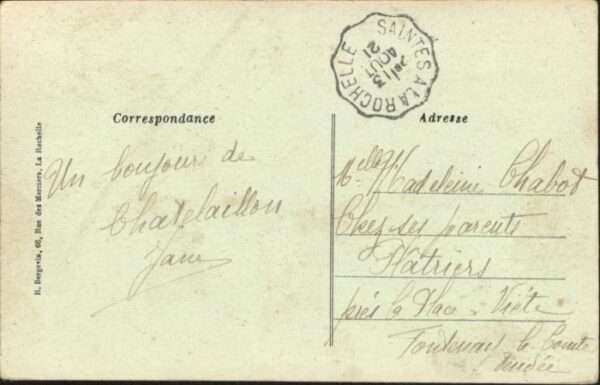 SAINTES A LA ROCHELLE
13
AOUT
21
Correspondance
Adresse
Un bonjour de
Chatelaillon
Melle Madeleine Chabot
Chez ses parents
Platriers
près la Place Viète
Fontenay le Comte
Vendée
H. Bergevin, 66, Rue des Merciers, La Rochelle